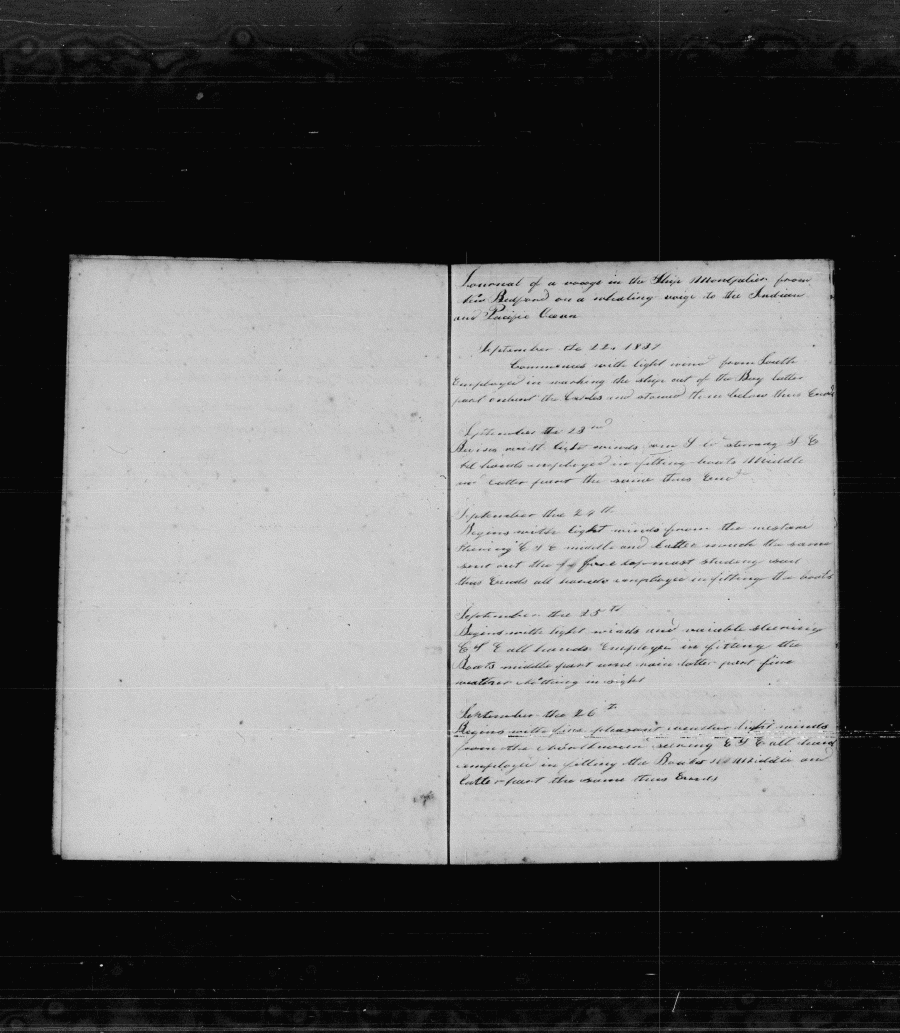 Journal of a voage in the Ship Montpelier from
New Bedford on a whaling voige to the Indian
and Pacific Ocean
September the 22 1837
Commences with light wind from South
Employed in working the ship out of the Bay latter
part unbent the Cables and stowed them below thus Ends
September the 23nd
Begins with light winds from S W stering S E
All hands employed in fitting boats Middle
and latter part the same thus End
September the 24th
Begins with light winds from the westard
Stering E S E middle and latter much the same
sent out the fore topmast studing sail
thus Ends all hands employed in fitting the boats
September the 25th
Begins with light winds and variable steering
E S E all hands Employed in fitting the
Boats middle part some rain latter part fine
weather Nothing in sight
September the 26th
Begins with fine pleasant weather light winds
from the Northward stering E S E all hand
employed in fitting the Boats Middle and
latter part the same thus Ends